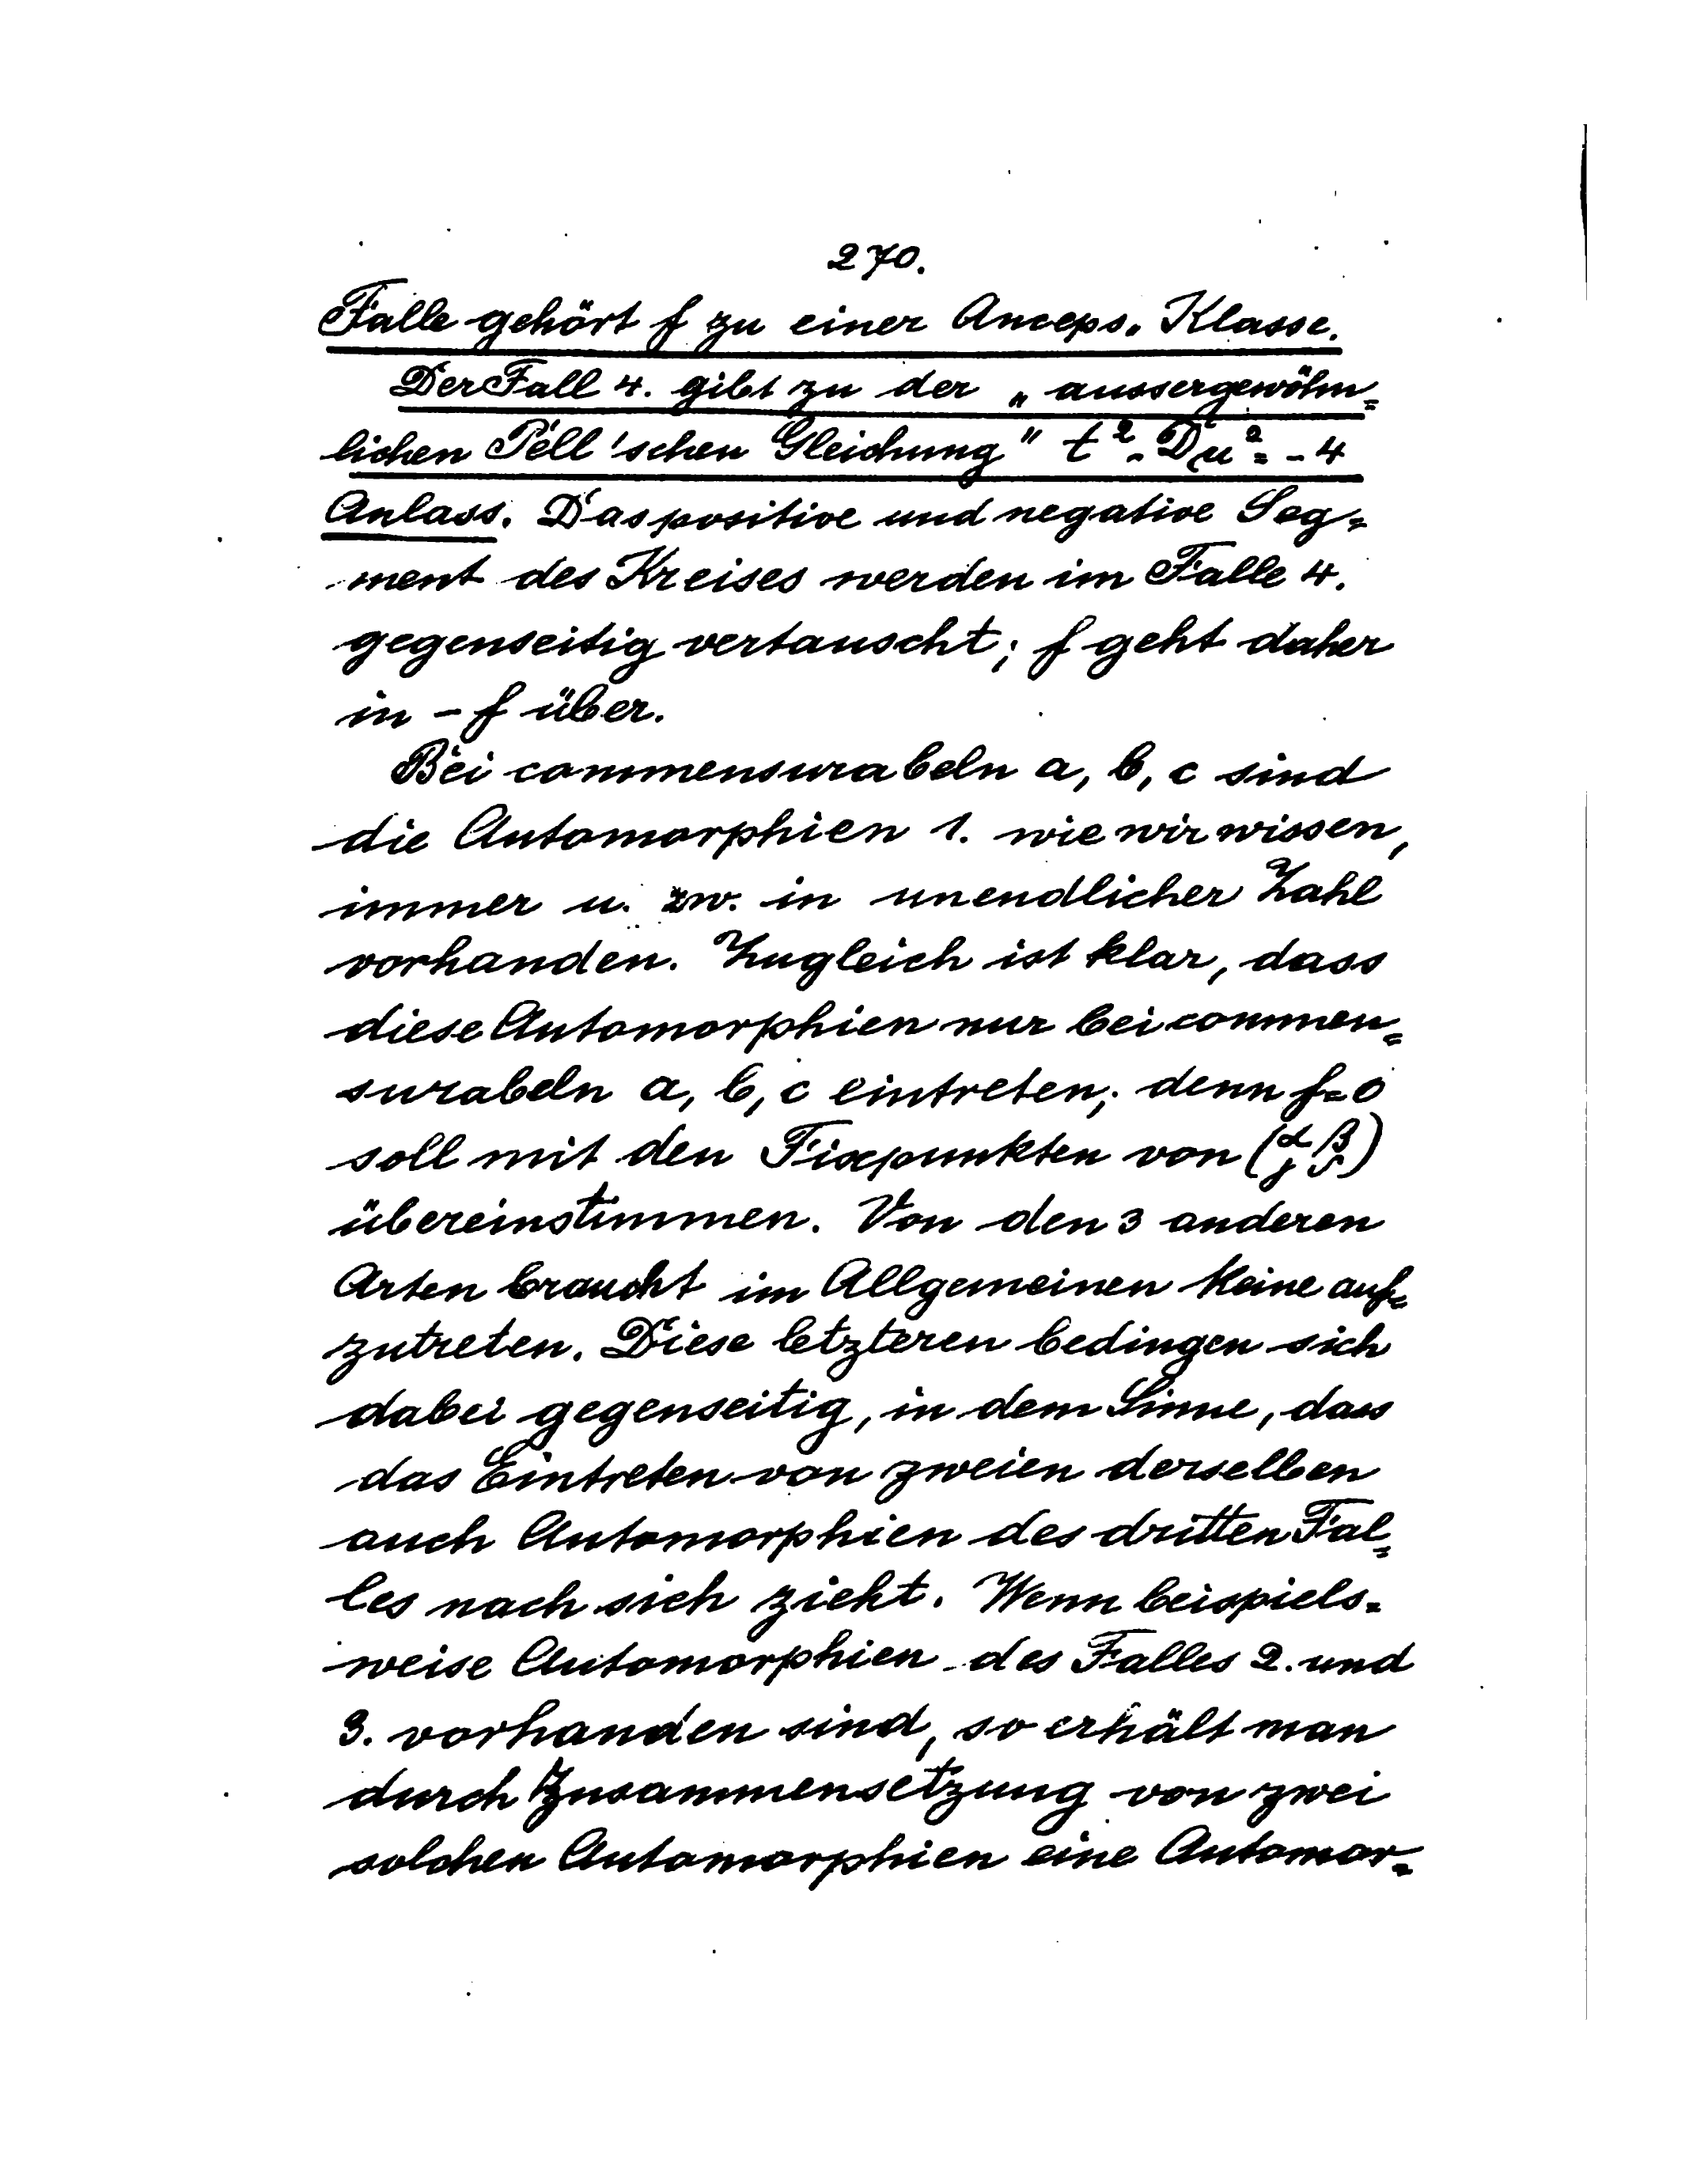 270.
Falle gehört f zu einer Anceps-Klasse.
Der Fall 4. gibt zu der „aussergewöhn=
lichen Pell'schen Gleichung" t² - Du² = -4
Anlass. Das positive und negative Seg=
ment des Kreises werden im Falle 4.
gegenseitig vertauscht; f geht daher
in -f über.
Bei commensurabeln a, b, c sind
die Automorphien 1. wie wir wissen,
immer u. zw. in unendlicher Zahl
vorhanden. Zugleich ist klar, dass
diese Automorphien nur bei commen=
surabeln a, b, c eintreten; denn f=0
soll mit den Fixpunkten von (α β
γ δ)
übereinstimmen. Von den 3 anderen
Arten braucht im Allgemeinen keine auf=
zutreten. Diese letzteren bedingen sich
dabei gegenseitig, in dem Sinne, dass
das Eintreten von zweien derselben
auch Automorphien des dritten Fal=
les nach sich zieht. Wenn beispiels=
weise Automorphien des Falles 2. und
3. vorhanden sind, so erhält man
durch Zusammensetzung von zwei
solchen Automorphien eine Automor=